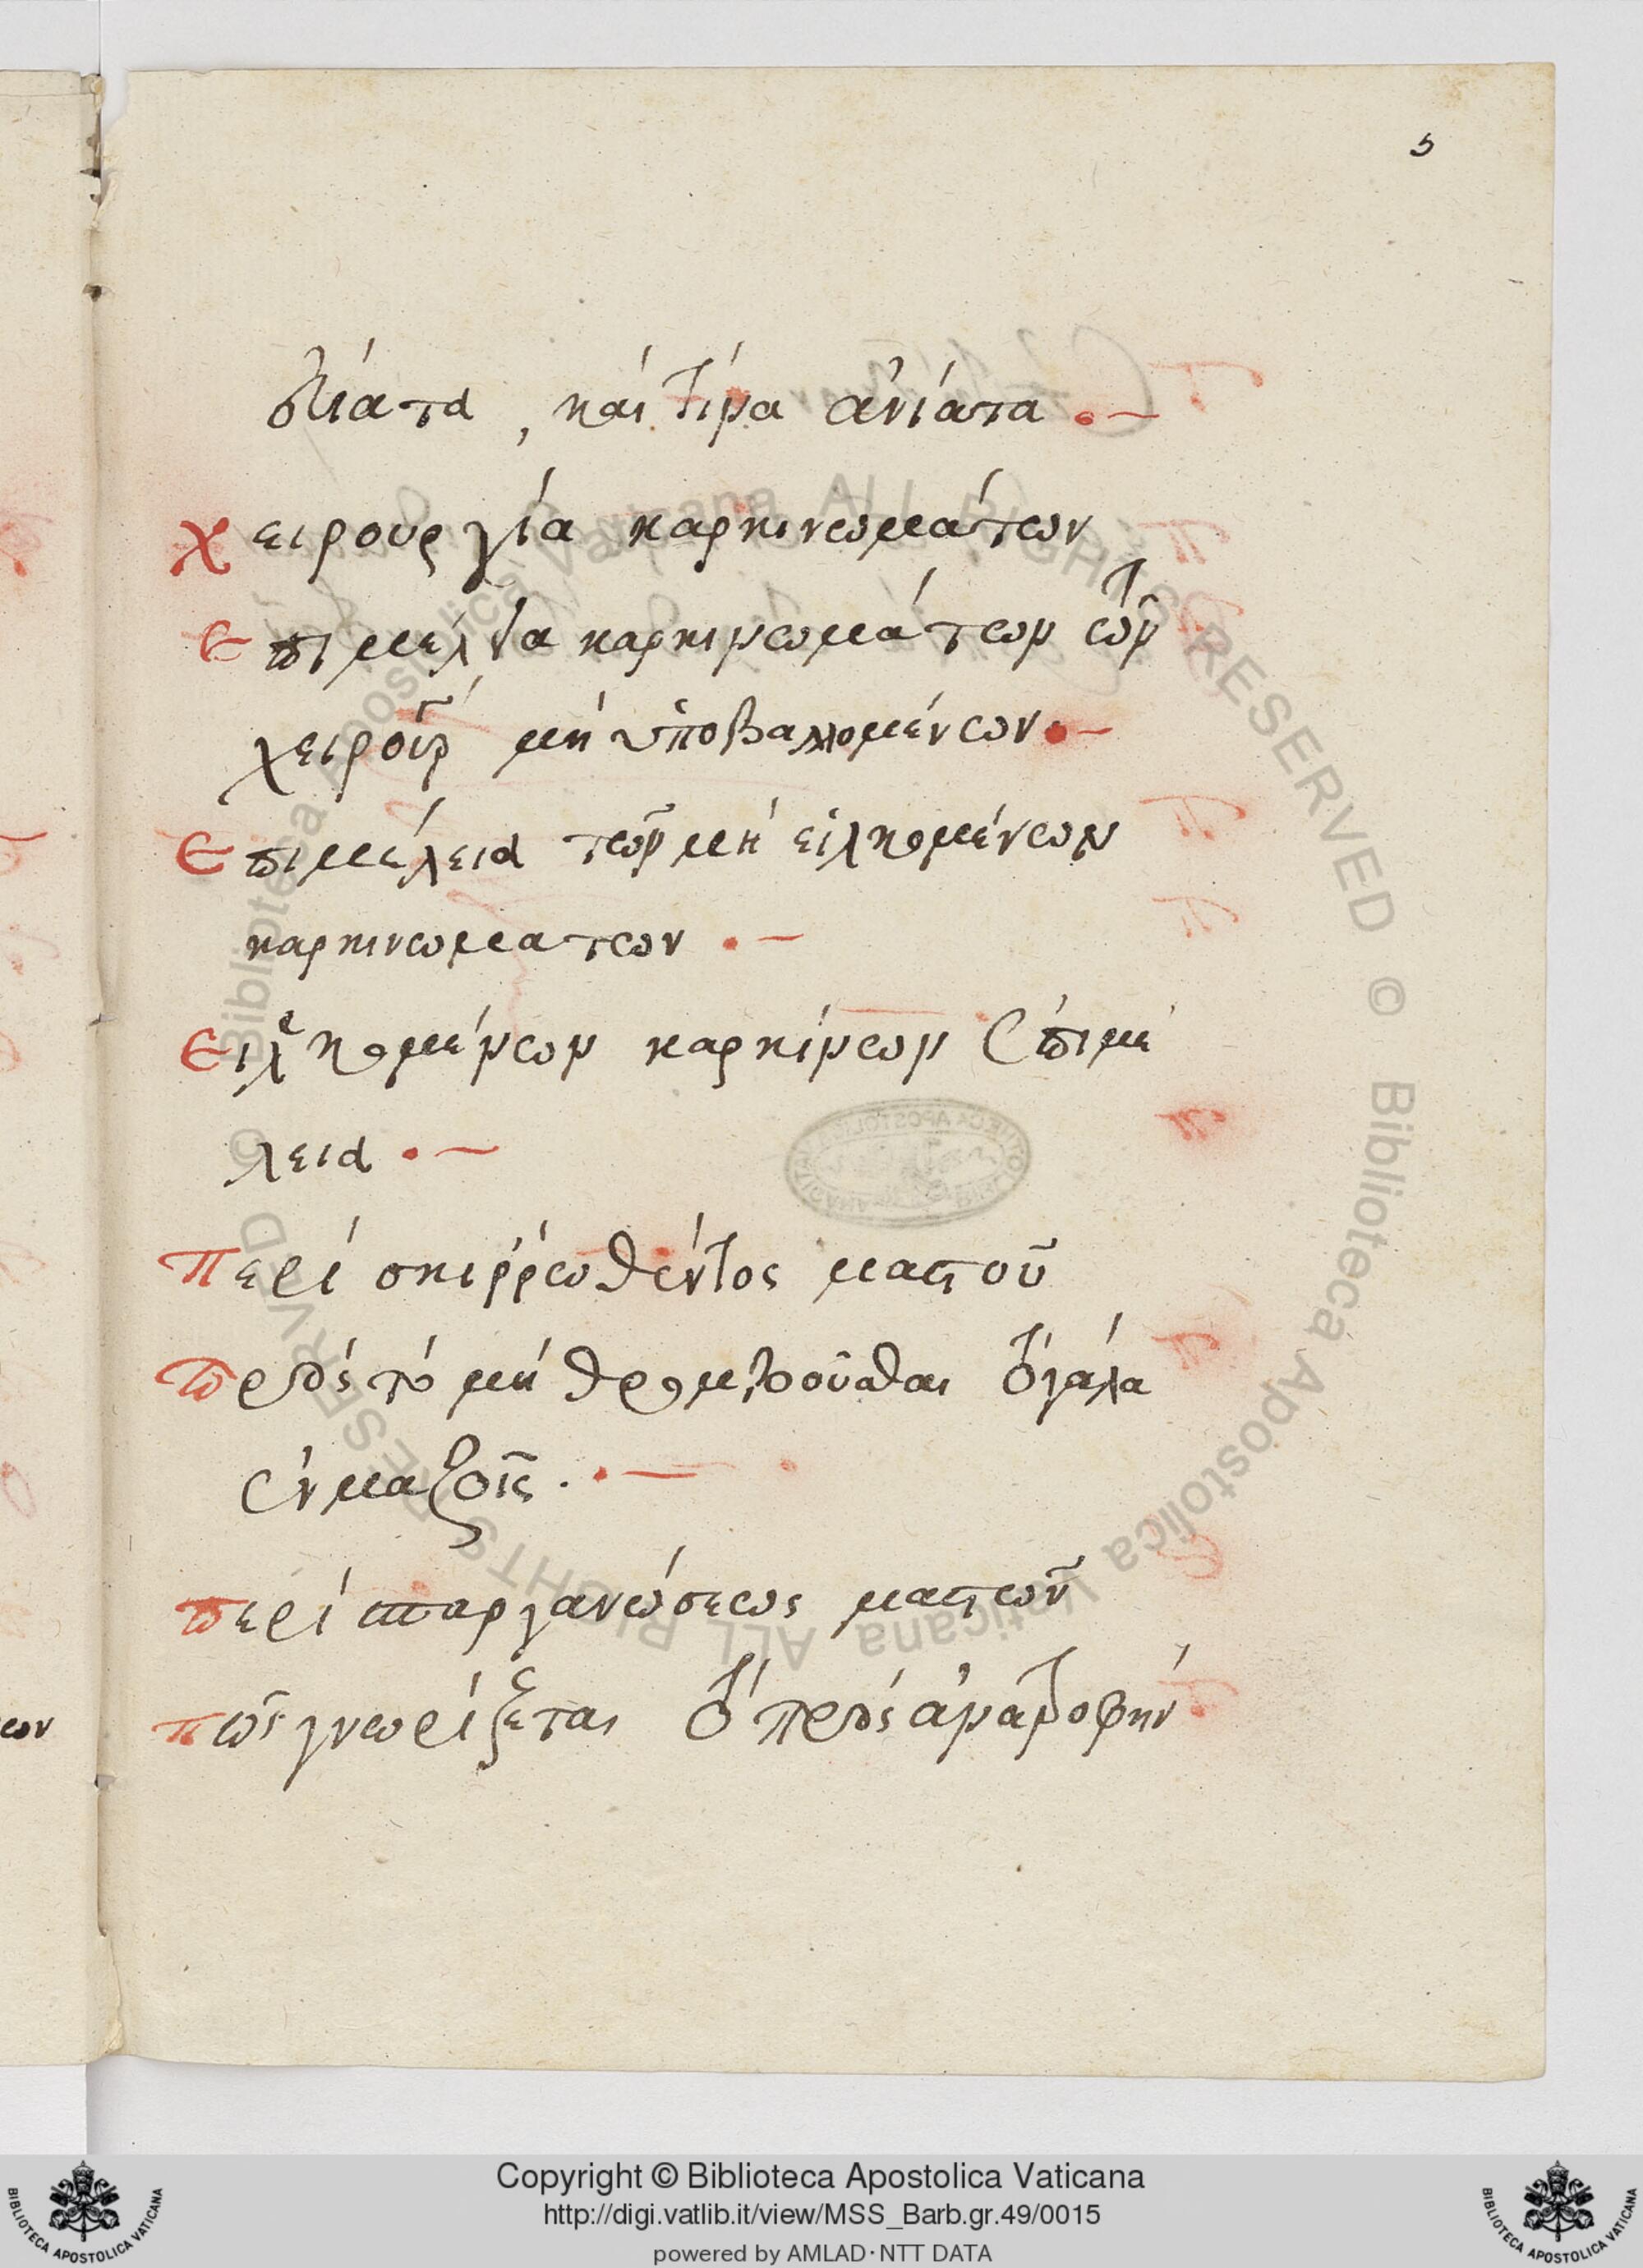 5
ἰάτα, καὶ τίνα ἀνίατα .—
Χειρουργία καρκινωμάτων
Ἐπιμέλεια καρκινωμάτων τῶν
χειρουργ μὴ ὑποβαλλομένων .—
Ἐπιμέλεια τῶν μὴ εἱλκομένων
καρκινωματων .—
Εἱλκομένων καρκίνων ἐπιμέ
λεια .—
Περὶ σκιῤῥωθέντος μαστοῦ
Πρὸς τὸ μὴ θρομβοῦσθαι τὸ γάλα
ἐν μαζοῖς .—
Περὶ σπαργανώσεως μαστῶν
Πῶς γνωρίζεται τὸ πρὸς ἀνατροφὴν
ων
© Biblioteca Apostolica Vaticana ALL RIGHTS RESERVED © Biblioteca Apostolica Vaticana ALL RIGHTS RESERVED
Copyright © Biblioteca Apostolica Vaticana
http://digi.vatlib.it/view/MSS_Barb.gr.49/0015
powered by AMLAD·NTT DATA
BIBLIOTECA APOSTOLICA VATICANA
BIBLIOTECA APOSTOLICA VATICANA